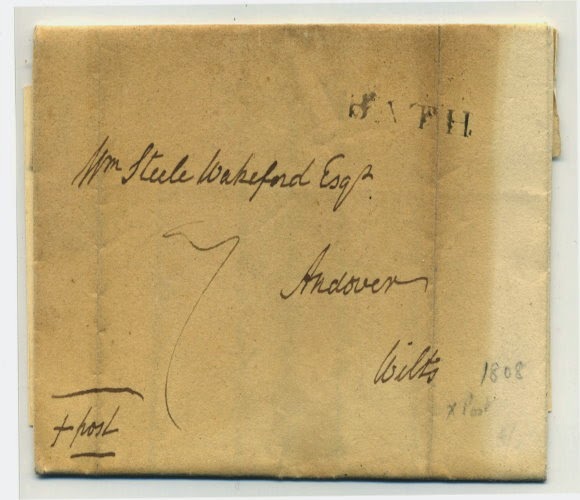 BATH
Wm Steele Wakeford Esqr.
7
Andover
Wilts
1808
x Post
+ post